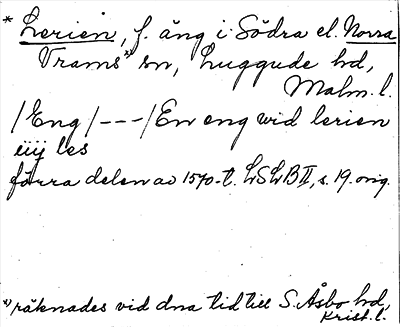 * Lerien, f. äng i Södra el. Norra
Trams x) sn, Luggude hd,
Malm. l.
/Eng/---/En eng wid lerien
iiij les
förra delen av 1570-t. LSLB II, s. 19. orig.
x) räknades vid dna tid till S. Åsbo hd,
Krist. l.